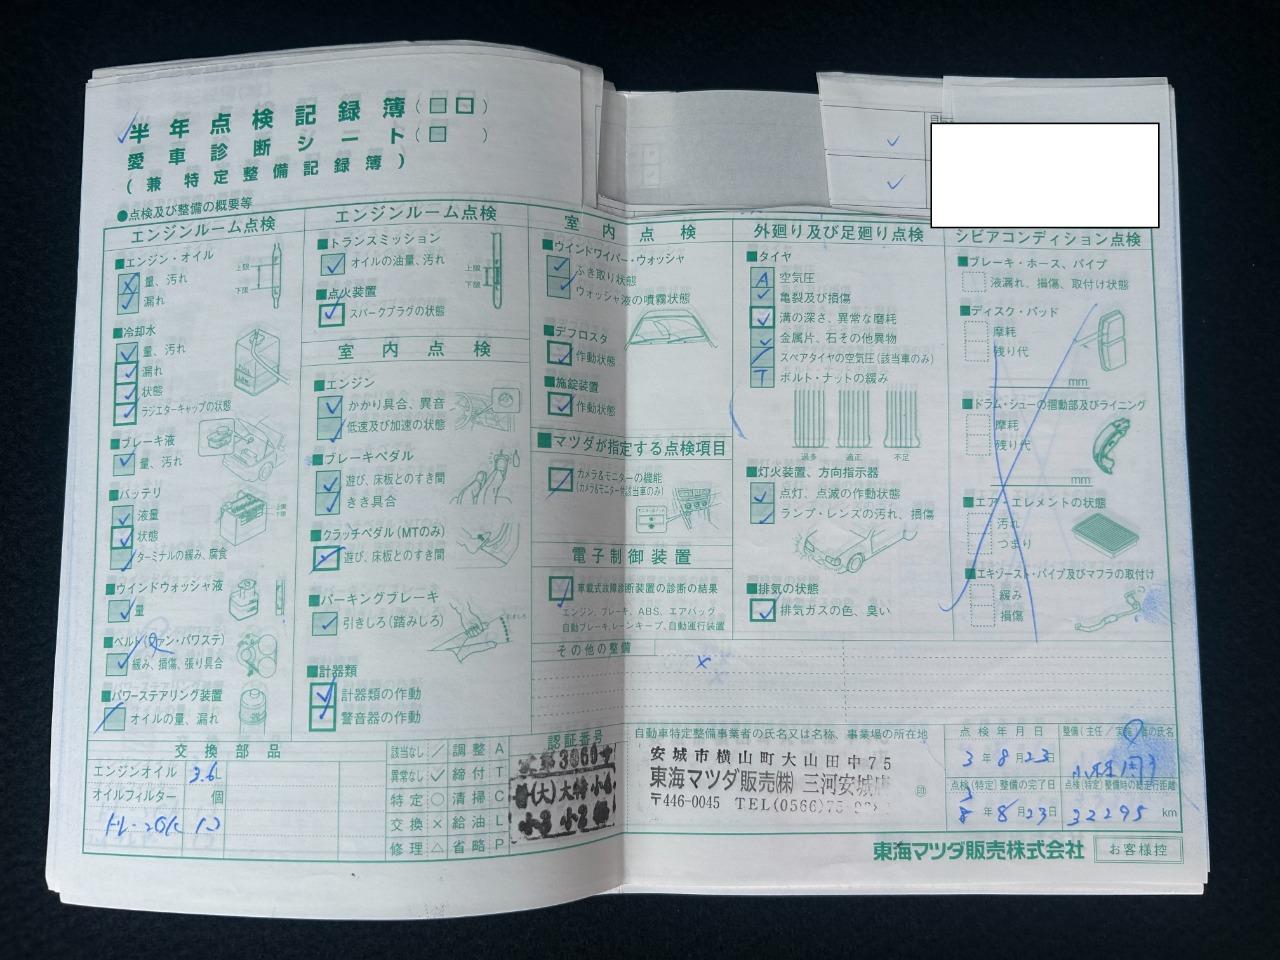 半年点検記録簿
愛車診断シート
(兼特定整備記録簿)
●点検及び整備の概要等
エンジンルーム点検
■エンジン・オイル
量、汚れ
漏れ
上限
下限
■冷却水
量、汚れ
漏れ
状態
ラジエターキャップの状態
■ブレーキ液
量、汚れ
■バッテリ
液量
状態
ターミナルの緩み、腐食
■ウインドウォッシャ液
量
■ベルト(ファン・パワステ)
緩み、損傷、張り具合
■パワーステアリング装置
オイルの量、漏れ
エンジンルーム点検
■トランスミッション
オイルの油量、汚れ
上限
下限
■点火装置
スパークプラグの状態
室内点検
■エンジン
かかり具合、異音
低速及び加速の状態
■ブレーキペダル
遊び、床板とのすき間
きき具合
■クラッチペダル(MTのみ)
遊び、床板とのすき間
■パーキングブレーキ
引きしろ(踏みしろ)
■計器類
計器類の作動
警音器の作動
室内点検
■ウインドワイパー・ウォッシャ
ふき取り状態
ウォッシャ液の噴霧状態
■デフロスタ
作動状態
■施錠装置
作動状態
■マツダが指定する点検項目
カメラ&モニターの機能
(カメラ&モニター付該当車のみ)
電子制御装置
車載式故障診断装置の診断の結果
エンジン、ブレーキ、ABS、エアバッグ
自動ブレーキ、レーンキープ、自動運行装置
その他の整備
外廻り及び足廻り点検
■タイヤ
A 空気圧
亀裂及び損傷
溝の深さ、異常な磨耗
金属片、石その他異物
スペアタイヤの空気圧(該当車のみ)
T ボルト・ナットの緩み
過多 適正 不足
■灯火装置、方向指示器
点灯、点滅の作動状態
ランプ・レンズの汚れ、損傷
■排気の状態
排気ガスの色、臭い
シビアコンディション点検
■ブレーキ・ホース、パイプ
液漏れ、損傷、取付け状態
■ディスク・パッド
摩耗
残り代
mm
■ドラム・シューの摺動部及びライニング
摩耗
残り代
mm
■エア・エレメントの状態
汚れ
つまり
■エキゾースト・パイプ及びマフラの取付け
緩み
損傷
交換部品
エンジンオイル 3.6L
オイルフィルター 個
該当なし ／ 調整 A
異常なし ✓ 締付 T
特定 ○ 清掃 C
交換 × 給油 L
修理 △ 省略 P
認証番号
自動車特定整備事業者の氏名又は名称、事業場の所在地
安城市横山町大山田中75
東海マツダ販売㈱ 三河安城店
〒446-0045 TEL(0566)75-
印
点検年月日
3年8月23日
点検(特定)整備の完了日
3年8月23日
点検(特定)整備時の総走行距離
32295 km
東海マツダ販売株式会社
お客様控